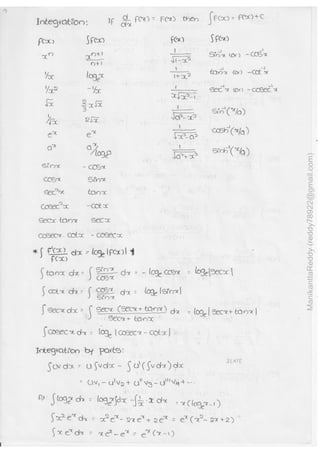 Integration: If d/dx F(x) = F(x) then ∫F(x) = F(x)+C
f(x) ∫f(x) f(x) ∫f(x)
xⁿ xⁿ⁺¹/n+1 1/√1-x² sin⁻¹x (or) -cos⁻¹x
1/x logₑx 1/1+x² tan⁻¹x (or) -cot⁻¹x
1/x² -1/x 1/x√x²-1 sec⁻¹x (or) -cosec⁻¹x
√x 2/3 x√x 1/√a²-x² sin⁻¹(x/a)
1/√x 2√x 1/√x²-a² cosh⁻¹(x/a)
eˣ eˣ 1/√a²+x² sinh⁻¹(x/a)
aˣ aˣ/logₑa
sinx -cosx
cosx sinx
sec²x tanx
cosec²x -cotx
secx tanx secx
cosecx cotx -cosecx
* ∫ f'(x)/f(x) dx = logₑ|f(x)|
∫tanx dx = ∫ sinx/cosx dx = -logₑ cosx = logₑ|secx|
∫cotx dx = ∫ cosx/sinx dx = logₑ|sinx|
∫secx dx = ∫ secx (secx+tanx)/secx+tanx dx = logₑ|secx+tanx|
∫cosecx dx = logₑ|cosecx-cotx|
Integration by parts:
∫uv dx = u∫vdx - ∫u'(∫vdx)dx
ILATE
= uv₁ - u'v₂ + u''v₃ - u'''v₄ + ...
Ex ∫logₑx dx = logₑx∫dx - ∫1/x · x dx = x(logₑx-1)
∫x²eˣ dx = x²eˣ - 2xeˣ + 2eˣ = eˣ(x²-2x+2)
∫xeˣ dx = xeˣ - eˣ = eˣ(x-1)
ManikantaReddy (reddy78922@gmail.com)